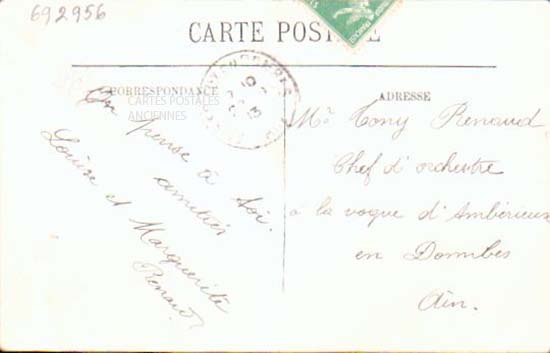 692956
CARTE POSTALE
CORRESPONDANCE
CARTES POSTALES
ANCIENNES
On pense à toi.
amitiés
Louise et Marguerite
Renaud
ADRESSE
Mr Tony Renaud
Chef d'orchestre
a la vogue d'Ambérieux
en Dombes
Ain.